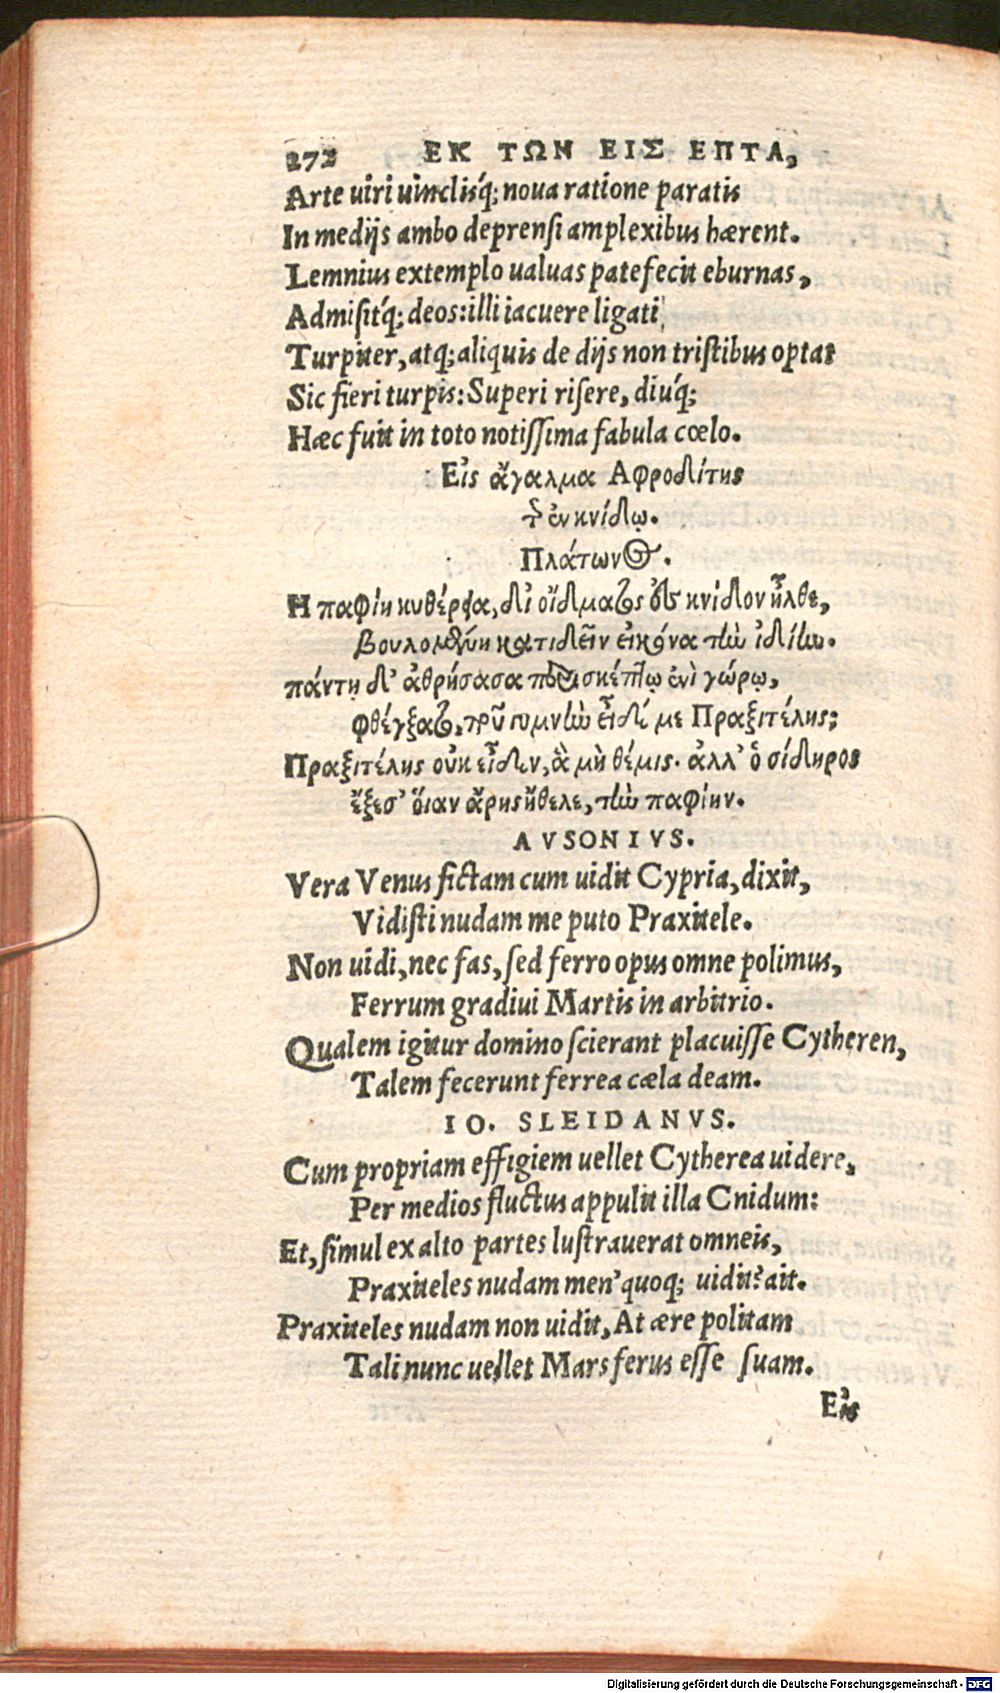 272 ΕΚ ΤΩΝ ΕΙΣ ΕΠΤΑ,
Arte uiri uinclisq́; noua ratione paratis
In medijs ambo deprensi amplexibus hærent.
Lemnius extemplo ualuas patefecit eburnas,
Admisitq́; deos: illi iacuere ligati
Turpiter, atq; aliquis de dijs non tristibus optat
Sic fieri turpis: Superi risere, diuq́;
Hæc fuit in toto notissima fabula cœlo.
Εἰς ἄγαλμα Αφροδίτης
τ͂ ἐν κνίδῳ.
Πλάτωνος.
Η παφίη κυθέρεια, δι' οἴδματος ἐς κνίδον ἦλθε,
βουλομένη κατιδεῖν εἰκόνα τὼ ἰδίω.
πάντη δ' ἀθρήσασα περισκέπτῳ ἐνὶ χώρῳ,
φθέγξατο, ποῦ γυμνὼ εἶδέ με Πραξιτέλης;
Πραξιτέλης οὐκ εἶδεν, ἃ μὴ θέμις. ἀλλ' ὁ σίδηρος
ἔξεσ' ὅιαν ἄρης ἤθελε, τὼ παφίην.
AVSONIVS.
Vera Venus fictam cum uidit Cypria, dixit,
Vidisti nudam me puto Praxitele.
Non uidi, nec fas, sed ferro opus omne polimus,
Ferrum gradiui Martis in arbitrio.
Qualem igitur domino scierant placuisse Cytheren,
Talem fecerunt ferrea cæla deam.
IO. SLEIDANVS.
Cum propriam effigiem uellet Cytherea uidere,
Per medios fluctus appulit illa Cnidum:
Et, simul ex alto partes lustrauerat omneis,
Praxiteles nudam men' quoq; uidit? ait.
Praxiteles nudam non uidit, At ære politam
Tali nunc uellet Mars ferus esse suam.
Εἰς
Digitalisierung gefördert durch die Deutsche Forschungsgemeinschaft - DFG